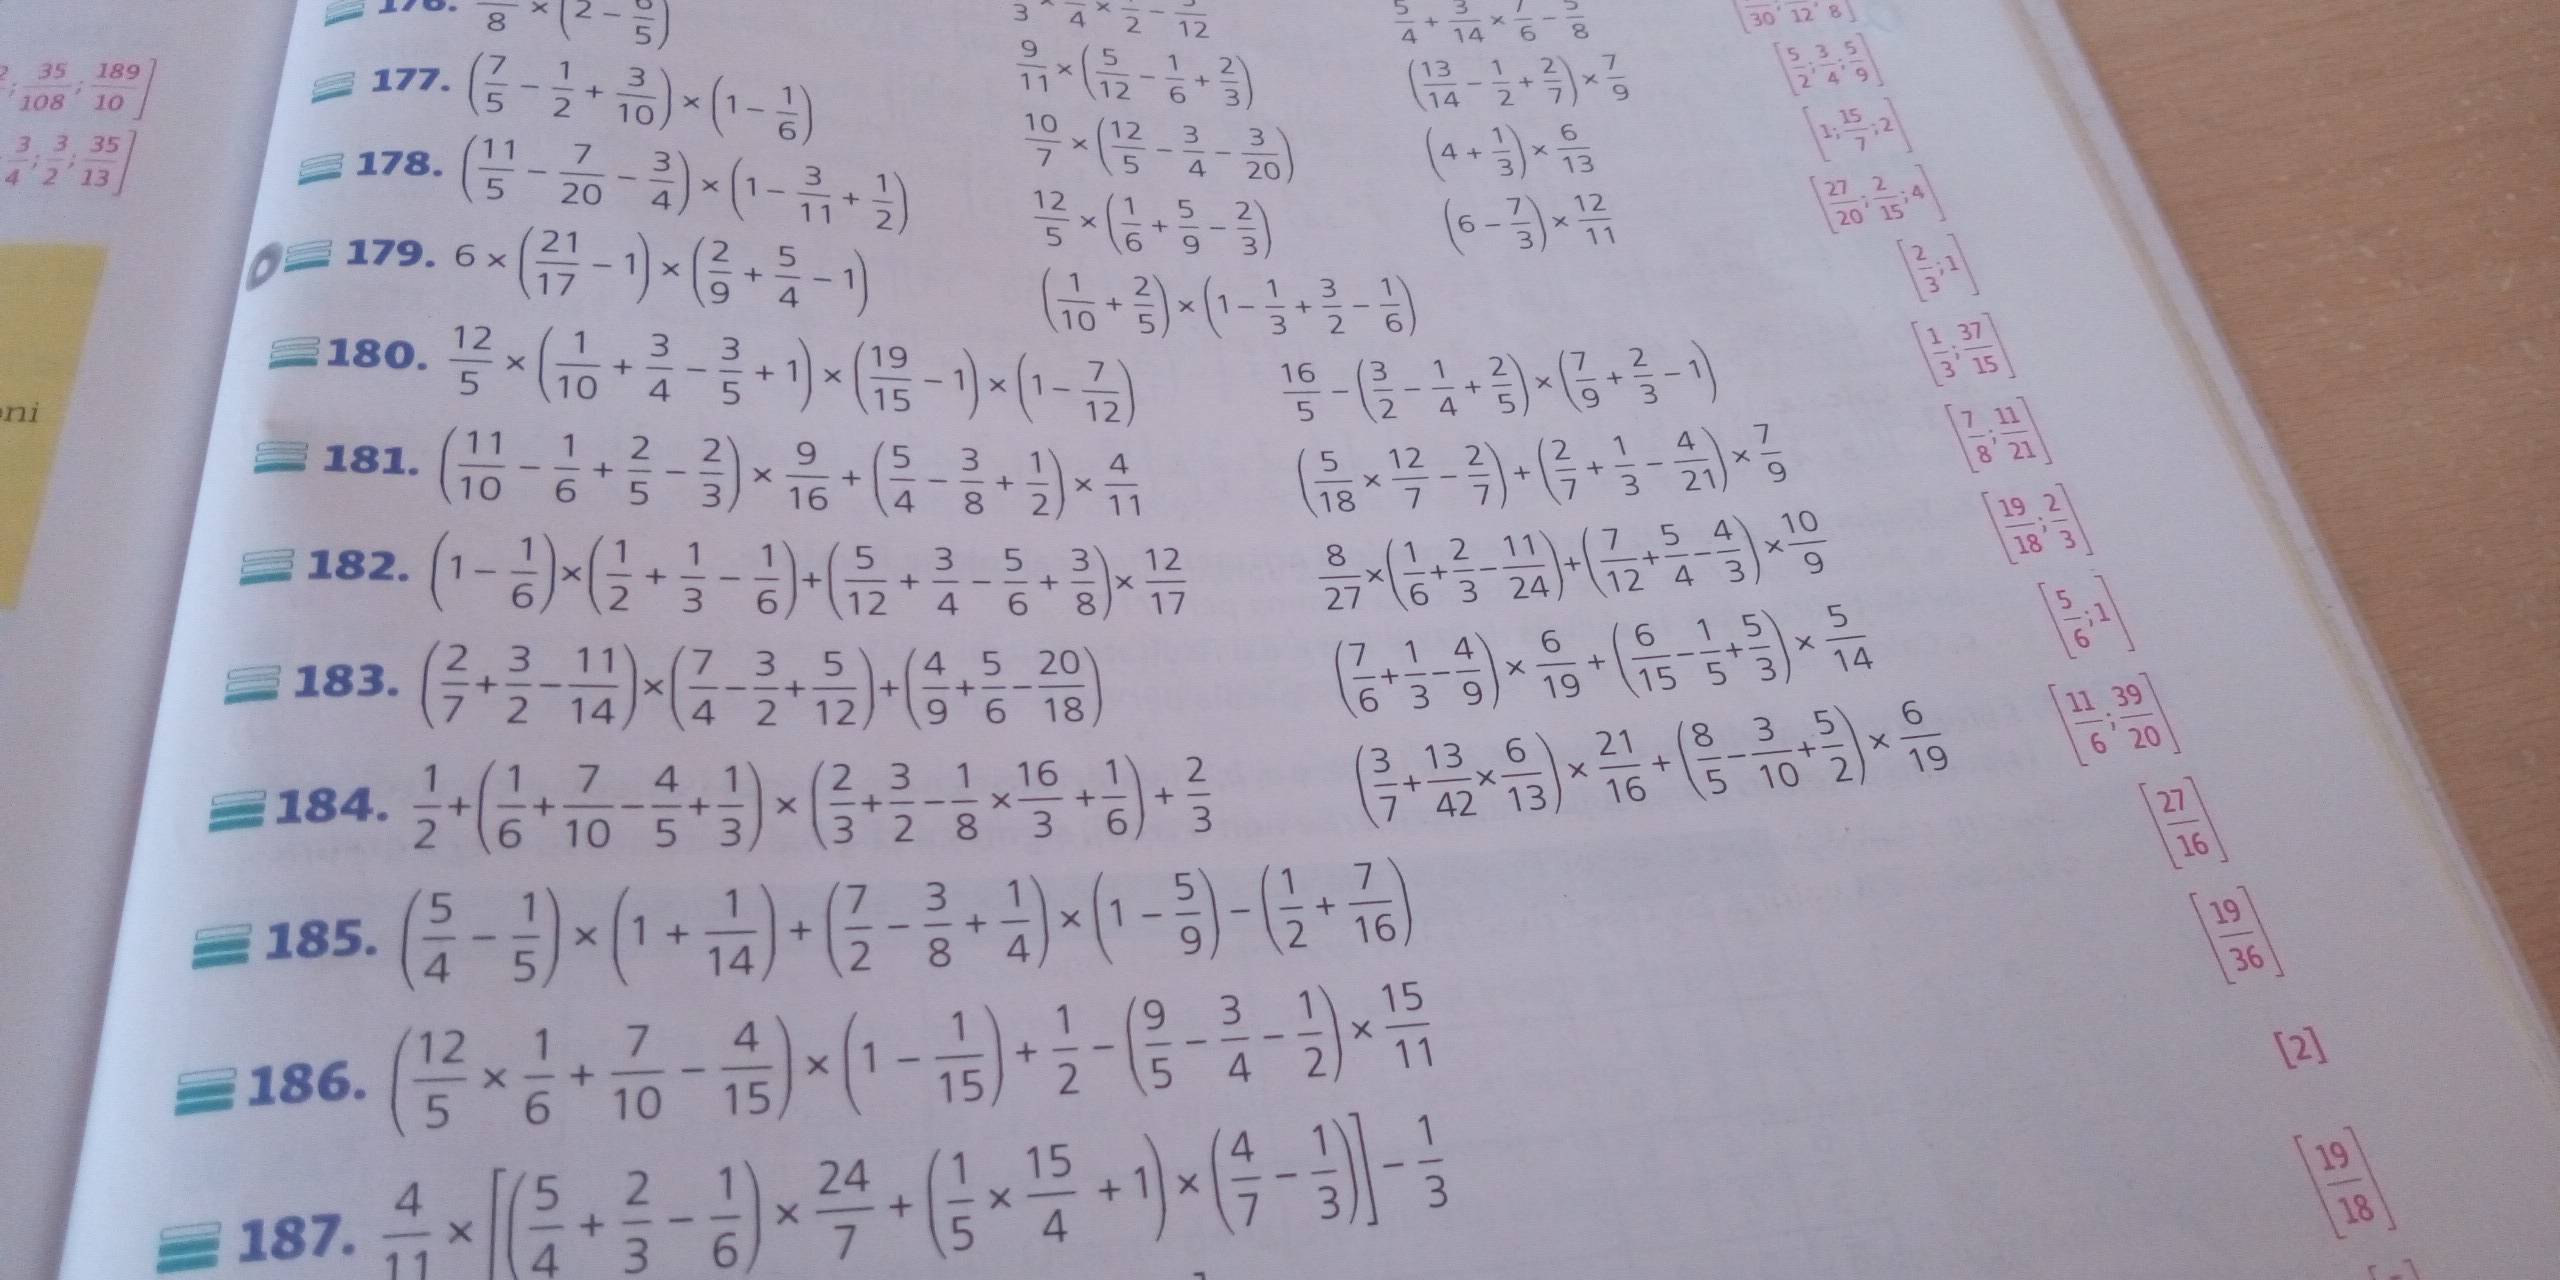 35/108; 189/10]
3/4; 3/2; 35/13]
ni
177. (7/5 − 1/2 + 3/10) × (1 − 1/6) 9/11 × (5/12 − 1/6 + 2/3) (13/14 − 1/2 + 2/7) × 7/9 [5/2; 3/4; 5/9]
178. (11/5 − 7/20 − 3/4) × (1 − 3/11 + 1/2) 10/7 × (12/5 − 3/4 − 3/20) (4 + 1/3) × 6/13 [1; 15/7; 2]
179. 6 × (21/17 − 1) × (2/9 + 5/4 − 1) 12/5 × (1/6 + 5/9 − 2/3) (6 − 7/3) × 12/11 [27/20; 2/15; 4]
(1/10 + 2/5) × (1 − 1/3 + 3/2 − 1/6) [2/3; 1]
180. 12/5 × (1/10 + 3/4 − 3/5 + 1) × (19/15 − 1) × (1 − 7/12) 16/5 − (3/2 − 1/4 + 2/5) × (7/9 + 2/3 − 1) [1/3; 37/15]
181. (11/10 − 1/6 + 2/5 − 2/3) × 9/16 + (5/4 − 3/8 + 1/2) × 4/11 (5/18 × 12/7 − 2/7) + (2/7 + 1/3 − 4/21) × 7/9 [7/8; 11/21]
182. (1 − 1/6) × (1/2 + 1/3 − 1/6) + (5/12 + 3/4 − 5/6 + 3/8) × 12/17 8/27 × (1/6 + 2/3 − 11/24) + (7/12 + 5/4 − 4/3) × 10/9 [19/18; 2/3]
183. (2/7 + 3/2 − 11/14) × (7/4 − 3/2 + 5/12) + (4/9 + 5/6 − 20/18) (7/6 + 1/3 − 4/9) × 6/19 + (6/15 − 1/5 + 5/3) × 5/14 [5/6; 1]
184. 1/2 + (1/6 + 7/10 − 4/5 + 1/3) × (2/3 + 3/2 − 1/8 × 16/3 + 1/6) + 2/3 (3/7 + 13/42 × 6/13) × 21/16 + (8/5 − 3/10 + 5/2) × 6/19 [11/6; 39/20]
185. (5/4 − 1/5) × (1 + 1/14) + (7/2 − 3/8 + 1/4) × (1 − 5/9) − (1/2 + 7/16) [27/16]
186. (12/5 × 1/6 + 7/10 − 4/15) × (1 − 1/15) + 1/2 − (9/5 − 3/4 − 1/2) × 15/11 [19/36]
187. 4/11 × [(5/4 + 2/3 − 1/6) × 24/7 + (1/5 × 15/4 + 1) × (4/7 − 1/3)] − 1/3 [2]
[19/18]